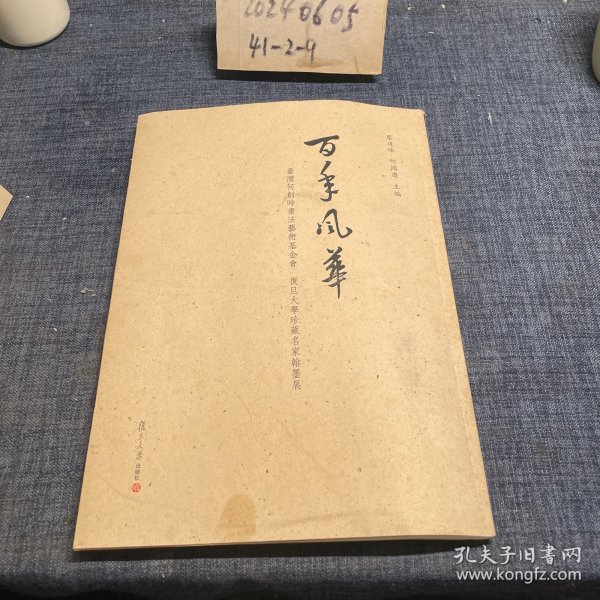 20240605
41-2-9
何國慶 主編
百年風華
臺灣何創時書法藝術基金會 復旦大學珍藏名家翰墨展
復旦大學出版社
孔夫子旧书网
www.kongfz.com